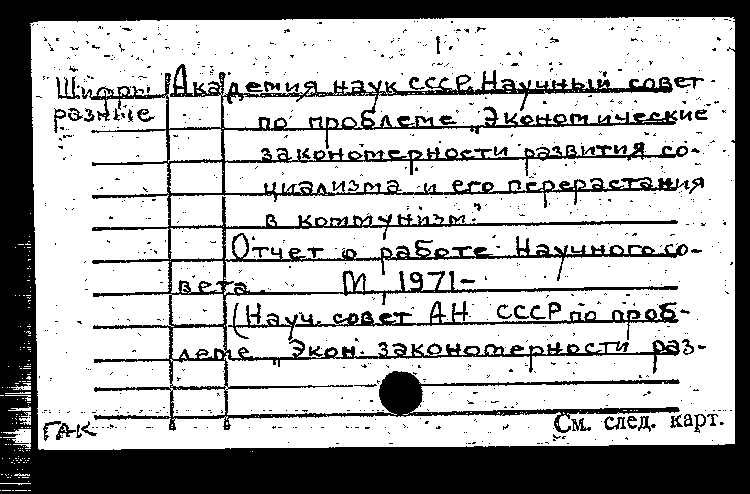 1.
Шифры разные
Академия наук СССР. Научный совет
по проблеме „Экономические
закономерности развития со-
циализма и его перерастания
в коммунизм."
Отчет о работе Научного со-
вета. М, 1971-
(Науч. совет АН СССР по проб-
леме „Экон. закономерности раз-
ГАК
См. след. карт.